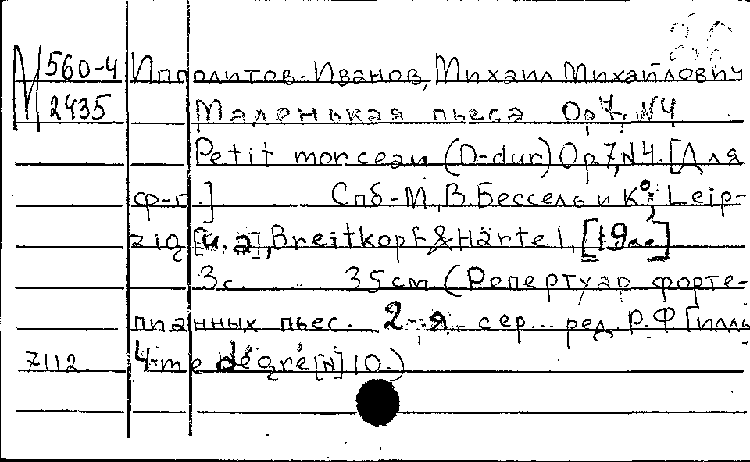 М 560-4 Ипполитов-Иванов, Михаил Михайлович
2435 Маленькая пьеса Ор 7, N4
Petit morceau (D-dur) Op 7, N4. [Для
ф-п.] Спб-М, В. Бессель и К°; Leip-
zig [u. a], Breitkopf & Härtel, [19..]
3 с. 35 cm (Репертуар форте-
пианных пьес. 2-я сер.. ред. Р.Ф Гилль
7112. 4-me degré [N] 10.)